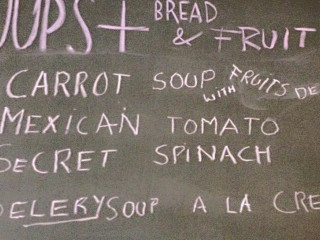 OUPS + BREAD & FRUIT
CARROT SOUP WITH FRUITS DE
MEXICAN TOMATO
SECRET SPINACH
CELERY SOUP A LA CRE